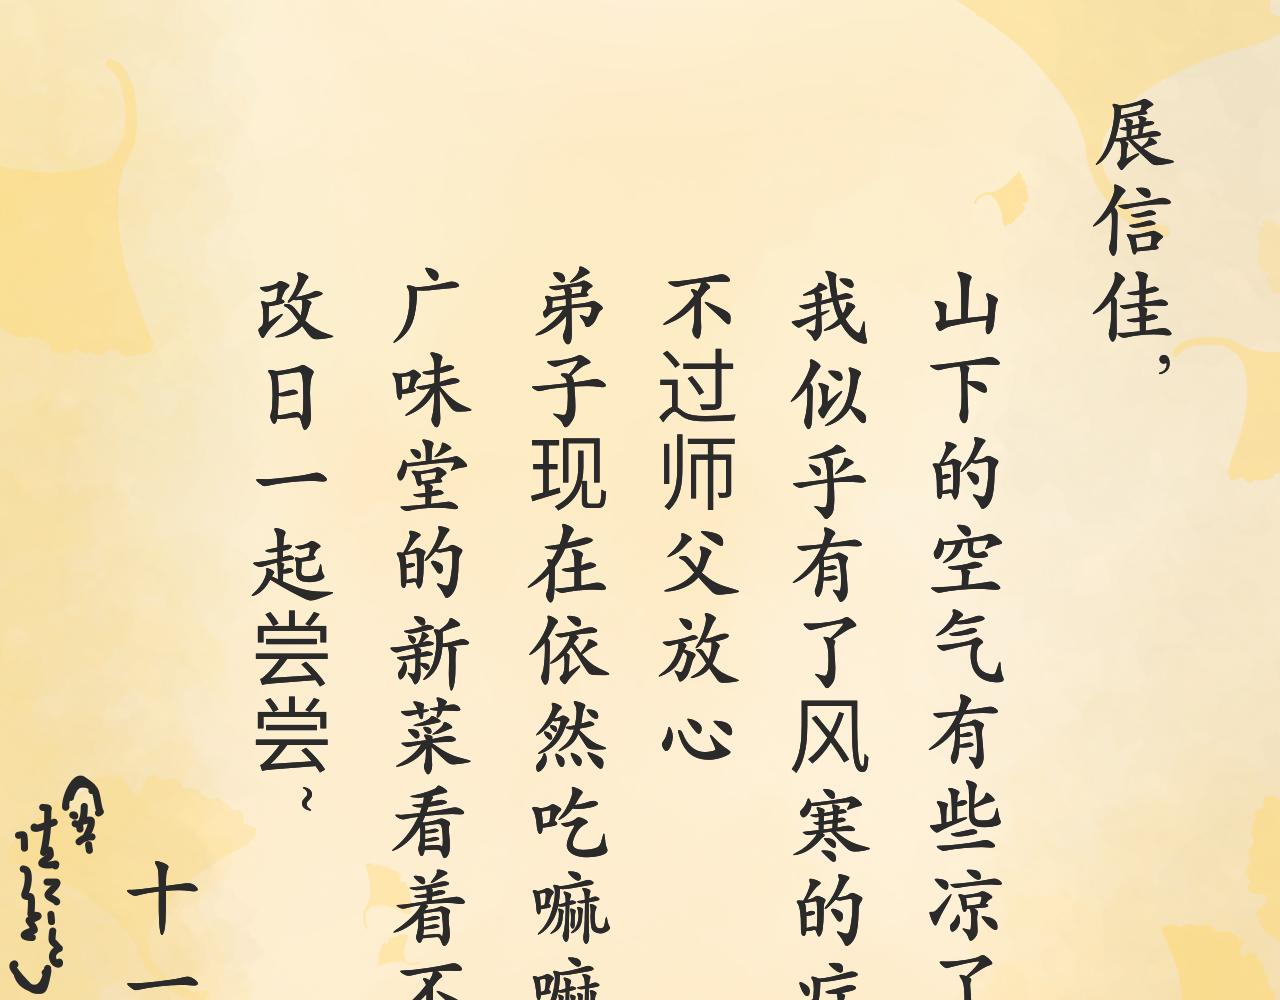 展信佳，
山下的空气有些凉了
我似乎有了风寒的症
不过师父放心
弟子现在依然吃嘛嘛
广味堂的新菜看着不
改日一起尝尝~
十一